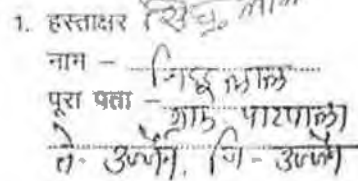 1. हस्ताक्षर सिद्धू लाल
नाम - सिद्धू लाल
पूरा पता - ग्राम- पाटपाला
ते- उज्जैन, जि - उज्जैन